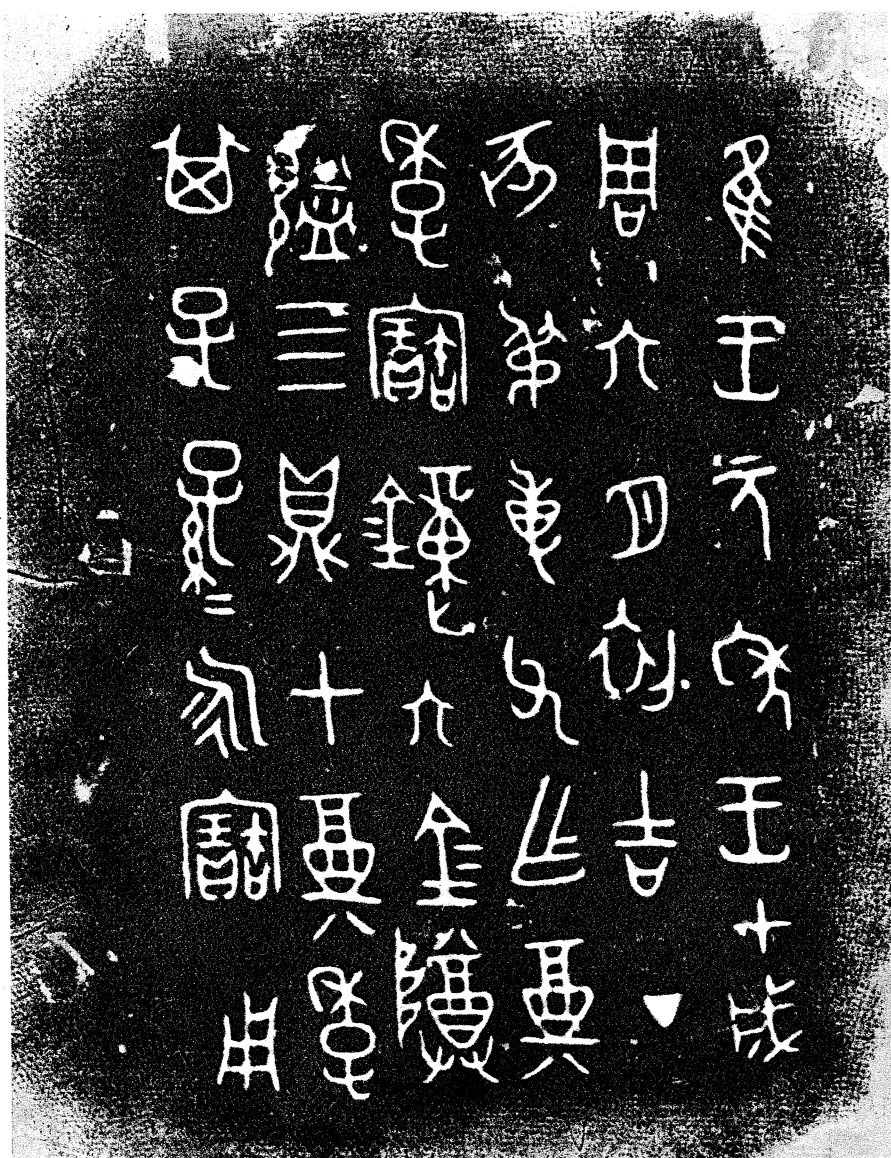 隹王元年王才成
周六月初吉丁
亥叔專父乍奠
季寶鐘六金尊
盨四鼎七奠季
其子孫=永寶用